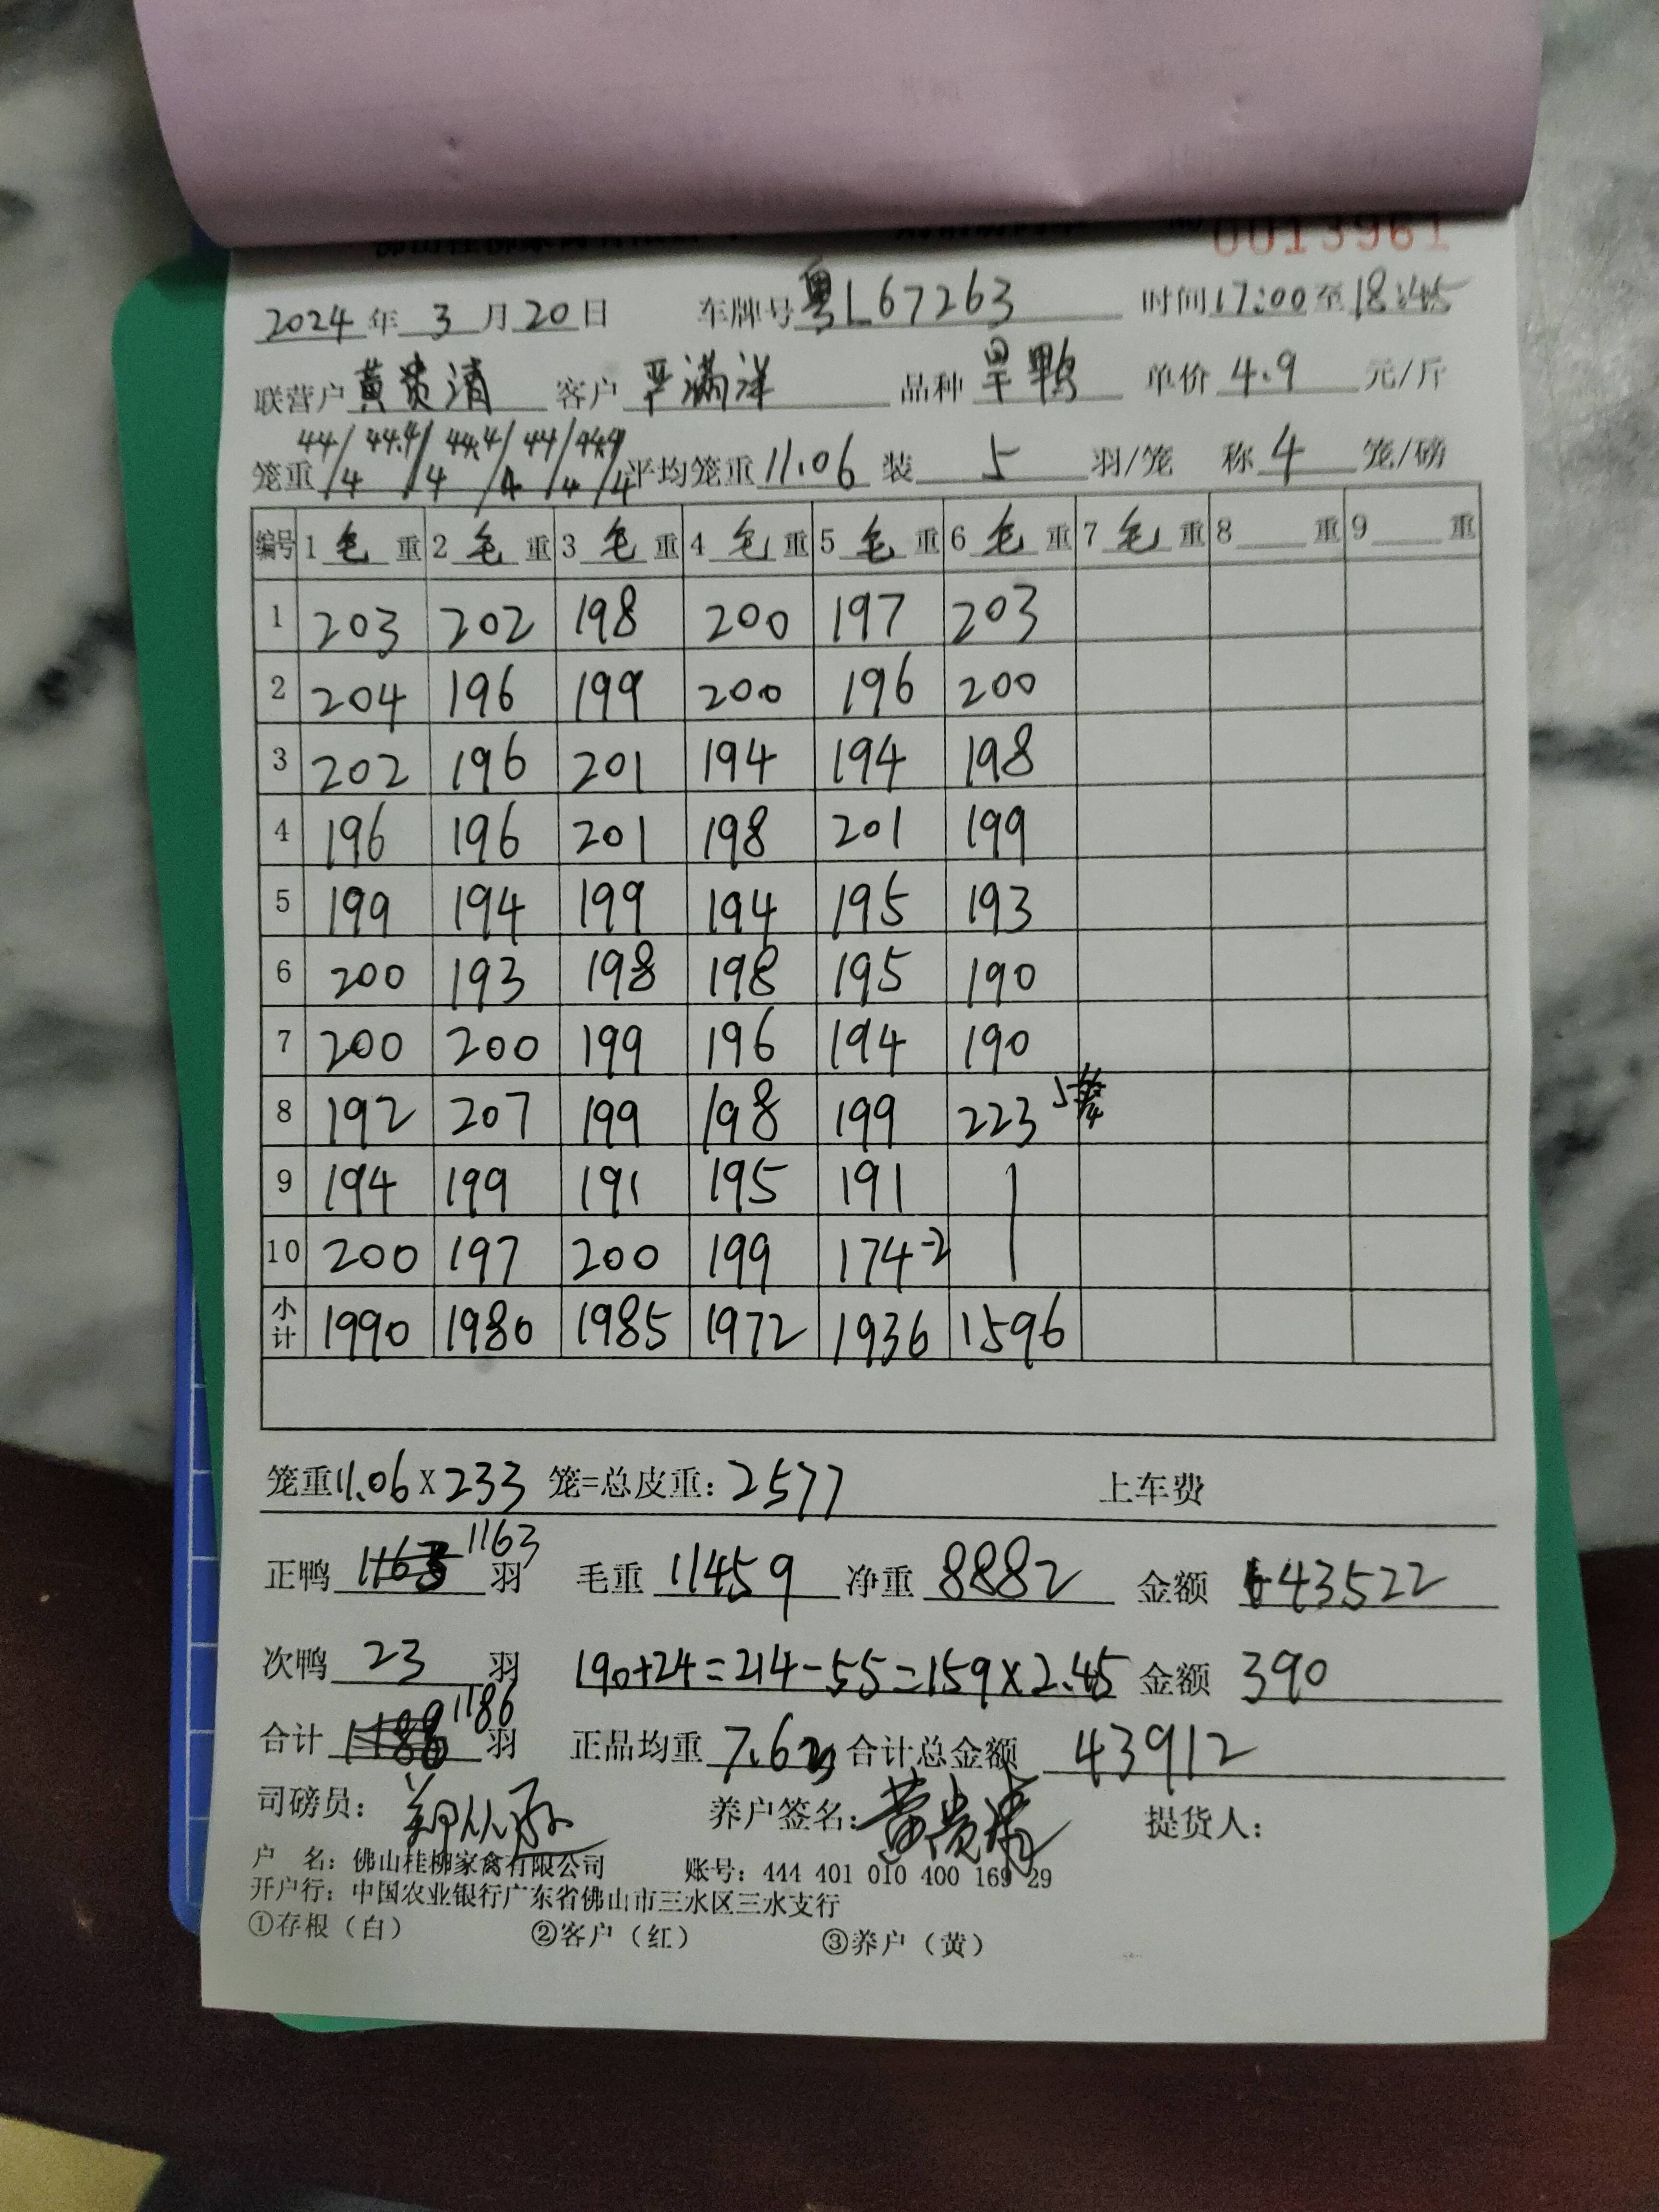 0013961
2024年3月20日 车牌号粤L67263 时间17:00至18:45
联营户黄贵清 客户严满洋 品种旱鸭 单价4.9元/斤
笼重44/4 44.4/4 44.4/4 44/4 44.4/4 平均笼重11.06装5羽/笼 称4笼/磅
编号 1毛重 2毛重 3毛重 4毛重 5毛重 6毛重 7毛重 8重 9重
1 203 202 198 200 197 203
2 204 196 199 200 196 200
3 202 196 201 194 194 198
4 196 196 201 198 201 199
5 199 194 199 194 195 193
6 200 193 198 198 195 190
7 200 200 199 196 194 190
8 192 207 199 198 199 223 5
9 194 199 191 195 191
10 200 197 200 199 174-2
小计 1990 1980 1985 1972 1936 1596
笼重11.06×233笼=总皮重:2577 上车费
正鸭1163羽 毛重11459净重8882 金额43522
次鸭23羽 190+24=214-55=159×2.45金额390
合计1186羽 正品均重7.63合计总金额43912
司磅员: 养户签名:黄贵清 提货人:
户 名:佛山桂柳家禽有限公司 账号:444 401 010 400 169 29
开户行:中国农业银行广东省佛山市三水区三水支行
①存根(白) ②客户(红) ③养户(黄)